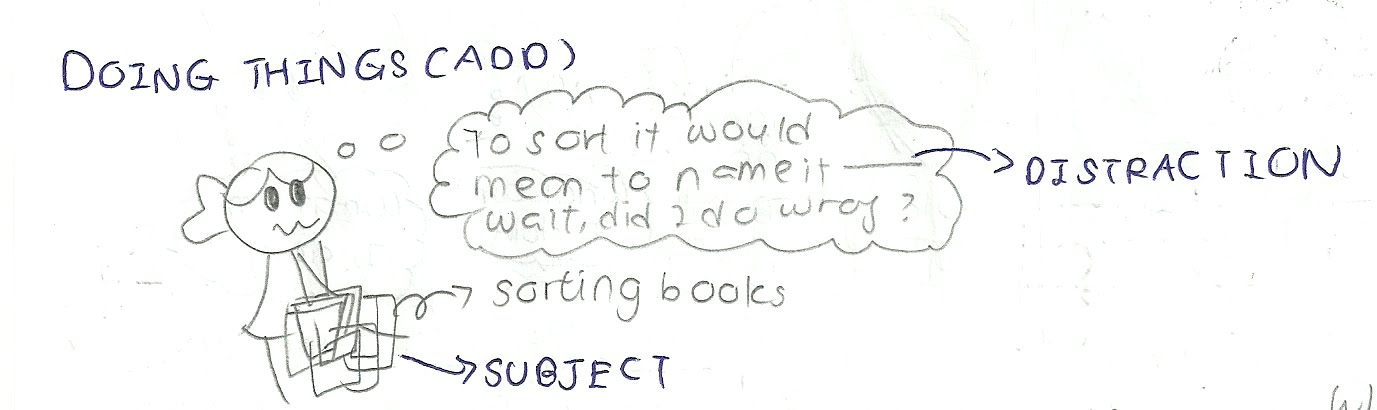 DOING THINGS (ADD)
To sort it would
mean to name it —
wait, did I do wrog?
DISTRACTION
sorting books
SUBJECT